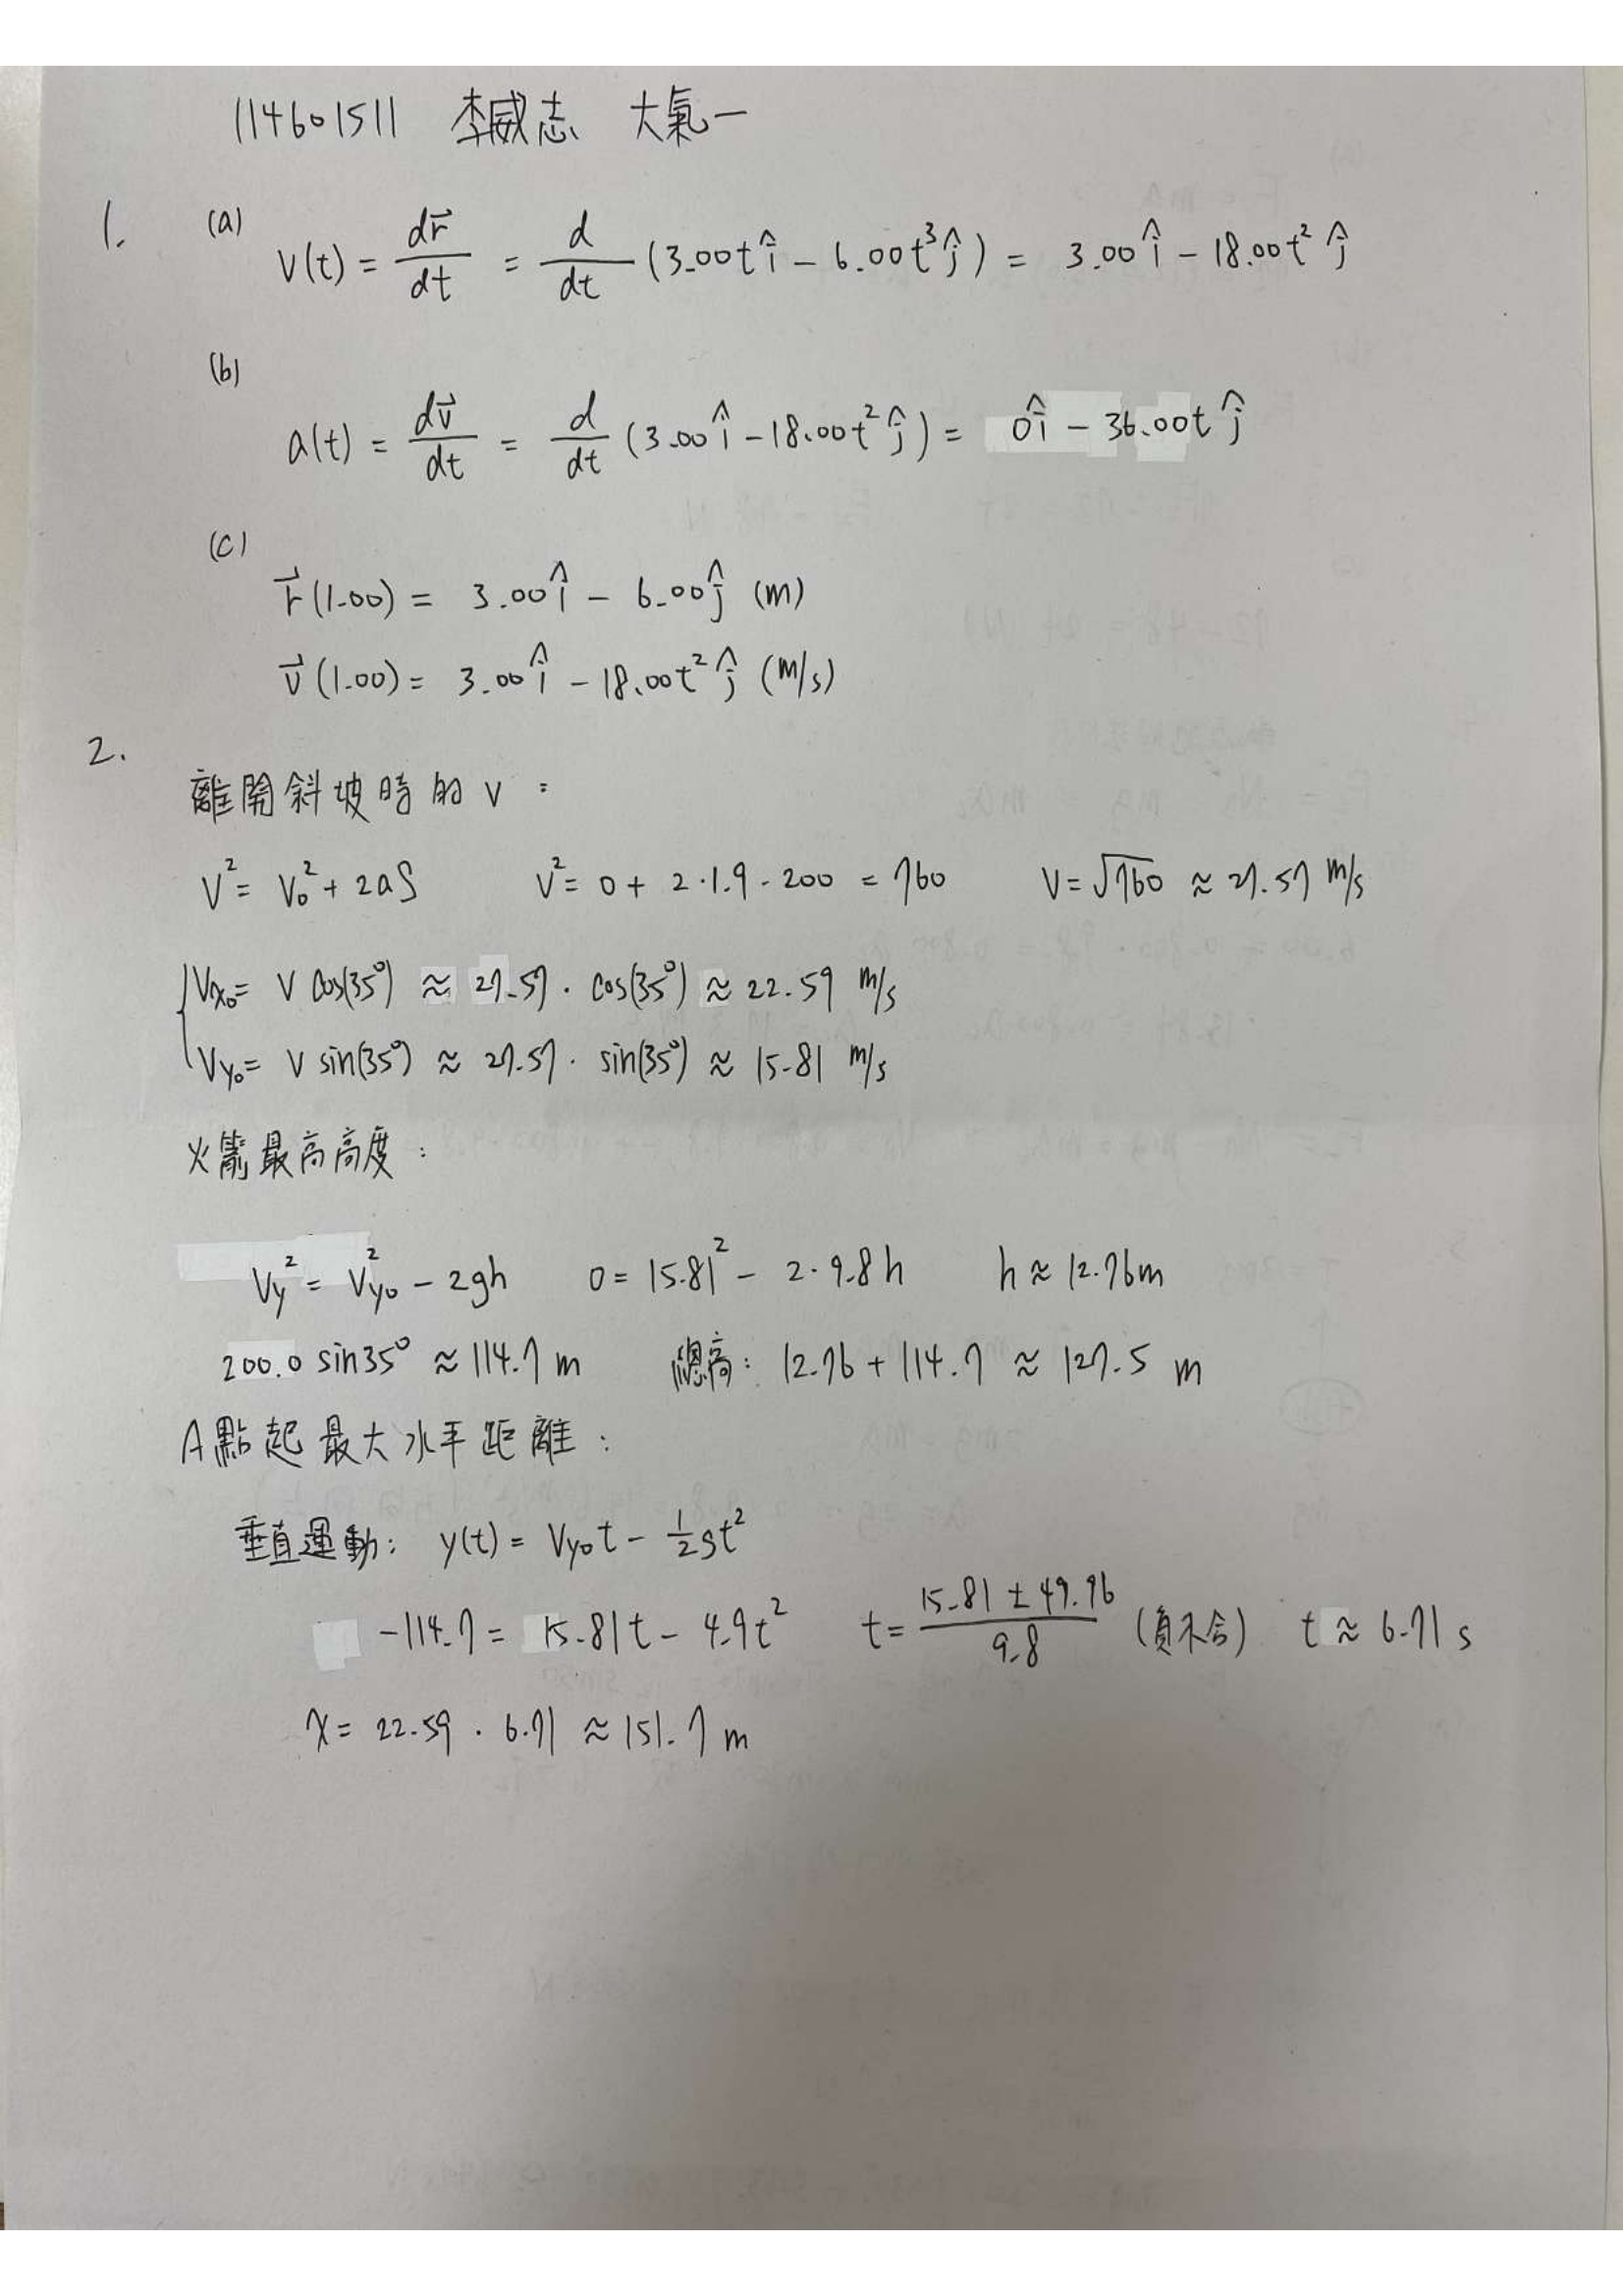 114601511 李威志 大氣一
1. (a) V(t) = dr⃗/dt = d/dt (3.00t î − 6.00t³ ĵ) = 3.00 î − 18.00t² ĵ
(b) a(t) = dv⃗/dt = d/dt (3.00 î − 18.00t² ĵ) = 0 î − 36.00t ĵ
(c)
r⃗(1.00) = 3.00 î − 6.00 ĵ (m)
v⃗(1.00) = 3.00 î − 18.00t² ĵ (m/s)
2.
離開斜坡時的 V :
V² = V₀² + 2aS V² = 0 + 2·1.9·200 = 760 V = √760 ≈ 27.57 m/s
Vx₀ = V cos(35°) ≈ 27.57 · cos(35°) ≈ 22.59 m/s
Vy₀ = V sin(35°) ≈ 27.57 · sin(35°) ≈ 15.81 m/s
火箭最高高度 :
Vy² = Vy₀² − 2gh 0 = 15.81² − 2·9.8h h ≈ 12.76m
200.0 sin35° ≈ 114.7 m 總高: 12.76 + 114.7 ≈ 127.5 m
A點起最大水平距離 :
垂直運動: y(t) = Vy₀t − ½gt²
−114.7 = 15.81t − 4.9t² t = (15.81 ± 49.96)/9.8 (負不合) t ≈ 6.71 s
X = 22.59 · 6.71 ≈ 151.7 m